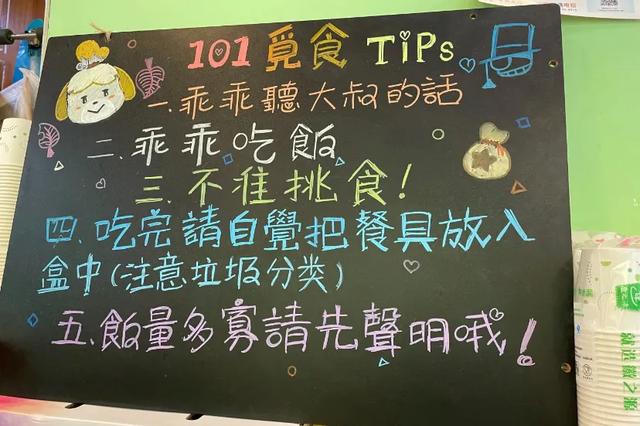 101 覓食 TiPs
一.乖乖聽大叔的話
二.乖乖吃飯
三.不准挑食!
四.吃完請自覺把餐具放入
盒中(注意垃圾分类)
五.飯量多寡請先聲明哦!